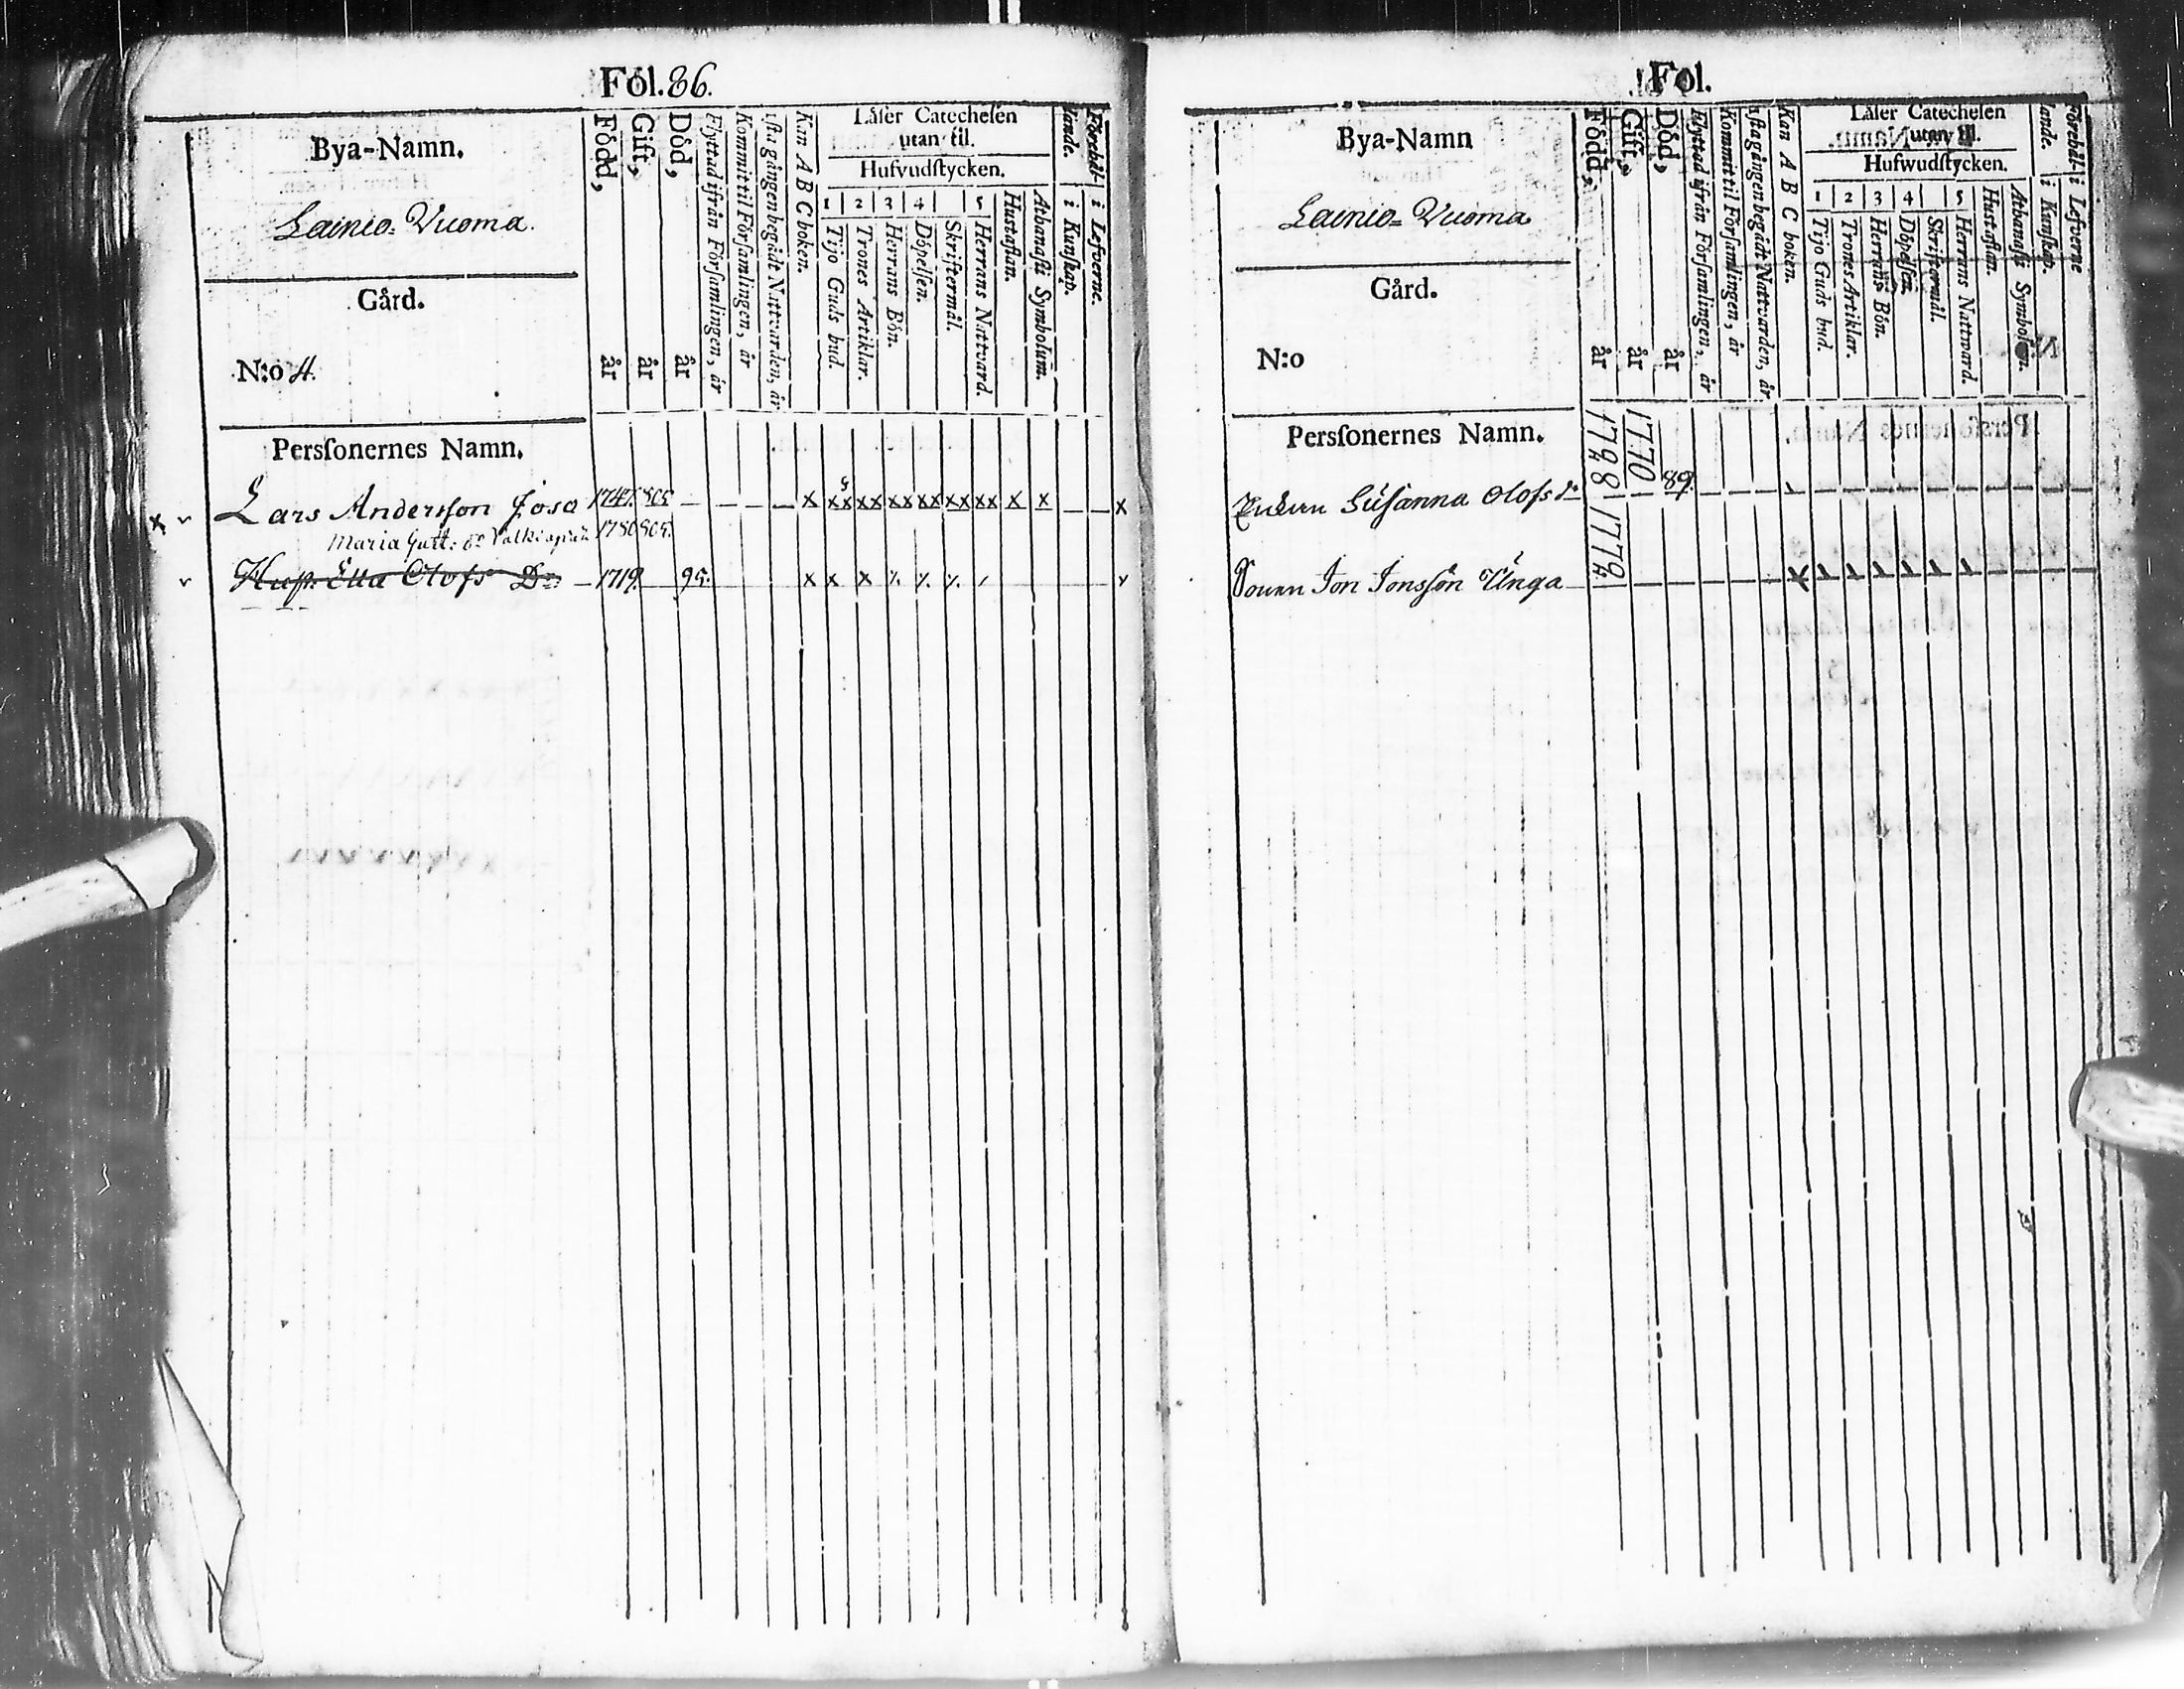 Fol. 86.
Bya-Namn.
Lainio-Vuoma.
Gård.
N:o 4.
Född, år
Gift, år
Död, år
Flyttad ifrån Församlingen, år
Kommit til Församlingen, år
1sta gången begådt Nattvarden, år
Kan A B C boken.
Läser Catechesen
utan til.
Hufvudstycken.
1 2 3 4 5
Tijo Guds bud.
Trones Artiklar.
Herrans Bön.
Döpelsen.
Skriftermål.
Herrans Nattvard.
Hustaflan.
Athanasii Symbolum.
Förehållande.
i Kunskap.
i Lefverne.
Perssonernes Namn.
Lars Andersson Joso 1747. 805 — — — — x xx xx xx xx xx xx x x — — x
Maria 1780 805.
Hust. Ella Olofs Dr — 1719. 95. x x x ٪ ٪ ٪ /
Fol.
Bya-Namn
Lainio-Vuoma
Gård.
N:o
Född, år
Gift, år
Död, år
Flyttad ifrån Församlingen, år
Kommit til Församlingen, år
1sta gången begådt Nattvarden, år
Kan A B C boken.
Läser Catechesen
utan til.
Hufwudstycken.
1 2 3 4 5
Tijo Guds bud.
Trones Artiklar.
Herrans Bön.
Döpelsen.
Skriftermål.
Herrans Nattward.
Hustaflan.
Athanasii Symbolum.
Förehållande.
i Kunskap.
i Lefverne
Perssonernes Namn.
Susanna Olofs dr 1770 89.
Jon Jonsson Unga 1779